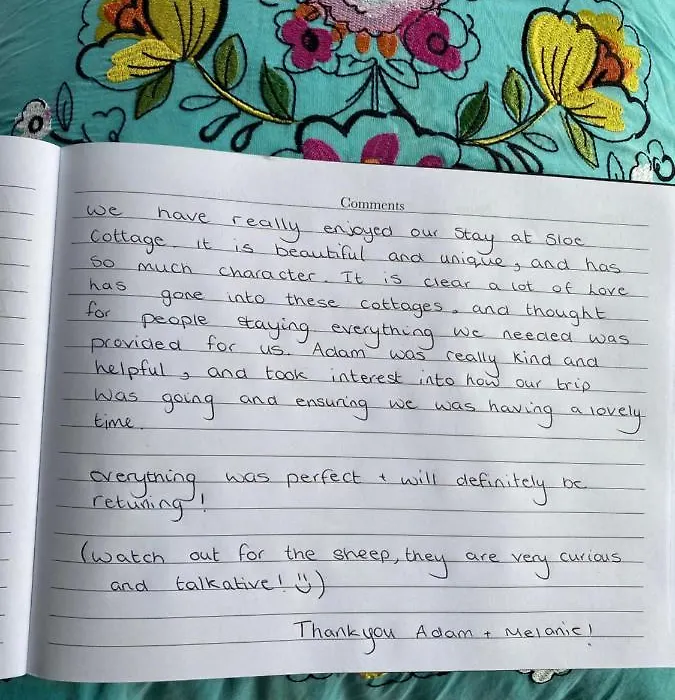 Comments
we have really enjoyed our stay at Sloe
Cottage. it is beautiful and unique, and has
so much character. It is clear a lot of love
has gone into these cottages, and thought
for people staying everything we needed was
provided for us. Adam was really kind and
helpful, and took interest into how our trip
was going and ensuring we was having a lovely
time.
everything was perfect + will definitely be
retuning!
(watch out for the sheep, they are very curious
and talkative! ☺)
Thankyou Adam + Melanie!